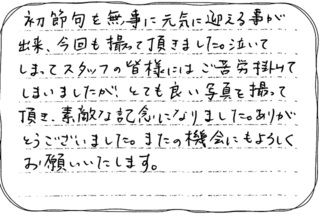 初節句を無事に元気に迎える事が
出来、今回も撮って頂きました。泣いて
しまってスタッフの皆様にはご苦労掛けて
しまいましたが、とても良い写真を撮って
頂き、素敵な記念になりました。ありが
とうございました。またの機会にもよろしく
お願いいたします。